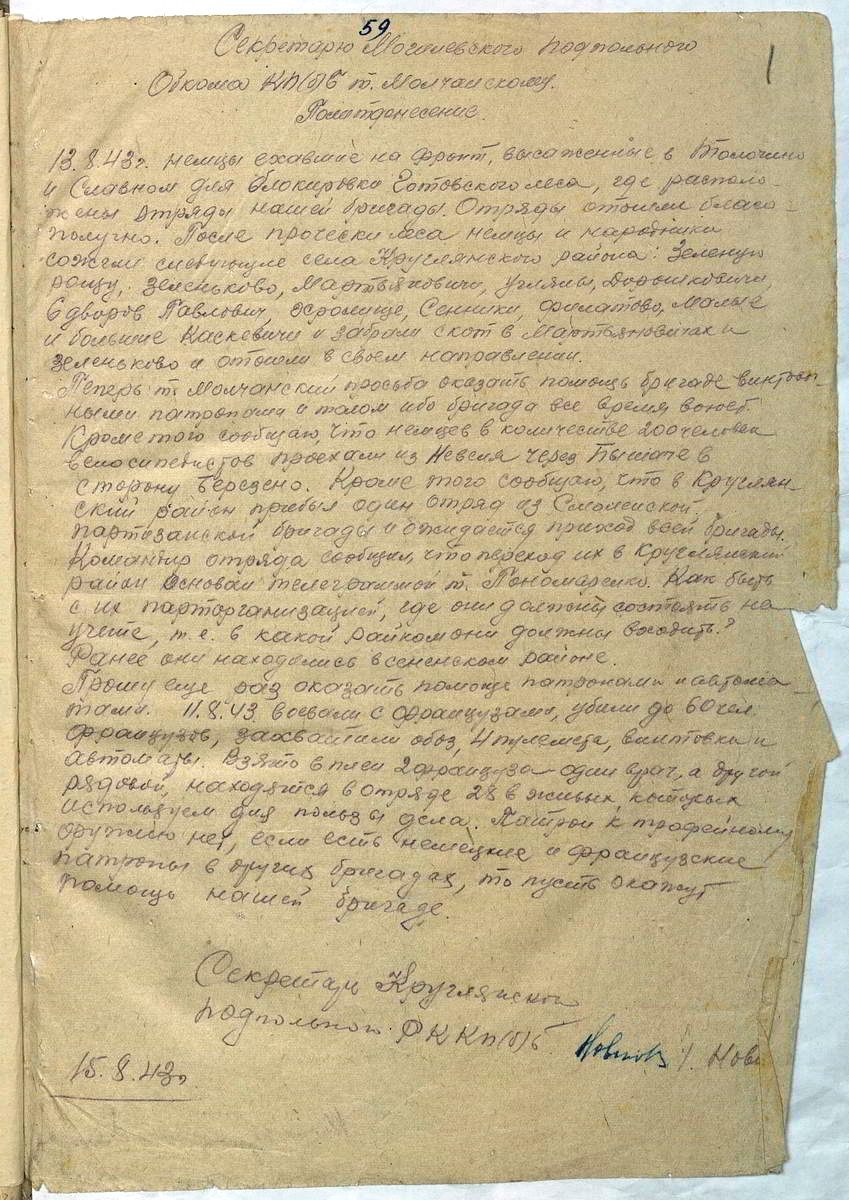 59
1
Секретарю Могилевского подпольного
Обкома КП(б)Б т. Молчанскому.
Политдонесение.
13.8.43г. немцы ехавшие на фронт, высаженные в Толочино
и Славном для блокировки Готовского леса, где располо-
жены отряды нашей бригады. Отряды отошли благо-
получно. После прочески леса немцы и народники
сожгли следующие села Круглянского района: Зеленую
рощу, Зеленьково, Мартьяновичи, Угляны, Дорошковичи,
6 дворов Павлович, Сенники, Филатово, Малые
и большие Каскевичи и забрали скот в Мартьяновичах и
Зеленьково и отошли в своем направлении.
Теперь т. Молчанский просьба оказать помощь бригаде винтов-
ными патронами и толом ибо бригада все время воюет.
Кроме того сообщаю, что немцев в количестве 200 человек
велосипедистов проехали из Невеля через в
сторону Березено. Кроме того сообщаю, что в Круглян-
ский район прибыл один отряд из Смоленской
партизанской бригады и ожидается приход всей бригады.
Командир отряда сообщил, что переход их в Круглянский
район основан телеграммой т. Пономаренко. Как быть
с их парторганизацией, где они должны состоять на
учете, т.е. в какой райком они должны входить?
Ранее они находились в сененском районе.
Прошу еще раз оказать помощь патронами и автома-
тами. 11.8.43 воевали с французами, убили до 60 чел.
французов, захватили обоз, 4 пулемета, винтовки и
автоматы. Взято в плен 2 француза один врач, а другой
рядовой, находятся в отряде 28 в живых, которых
используем для пользы дела. Патрон к трофейному
оружию нет, если есть немецкие и французские
патроны в других бригадах, то пусть окажут
помощь нашей бригаде.
Секретарь Круглянского
подпольного РК КП(б)Б
Новиков Нови
15.8.43г